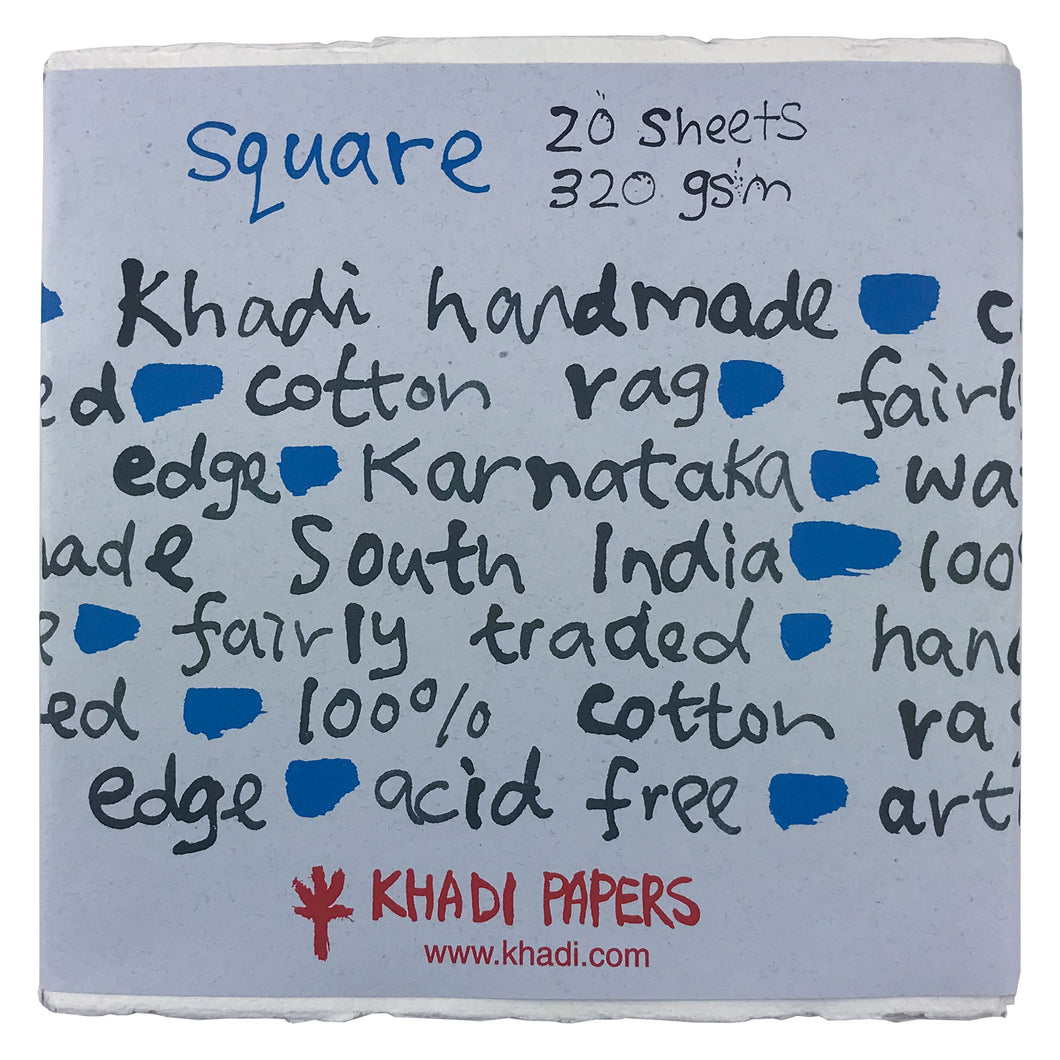 square
20 sheets
320 gsm
Khadi handmade c
ed cotton rag fairl
edge Karnataka wa
made South India 100
e fairly traded hand
ed 100% cotton rag
edge acid free art
KHADI PAPERS
www.khadi.com